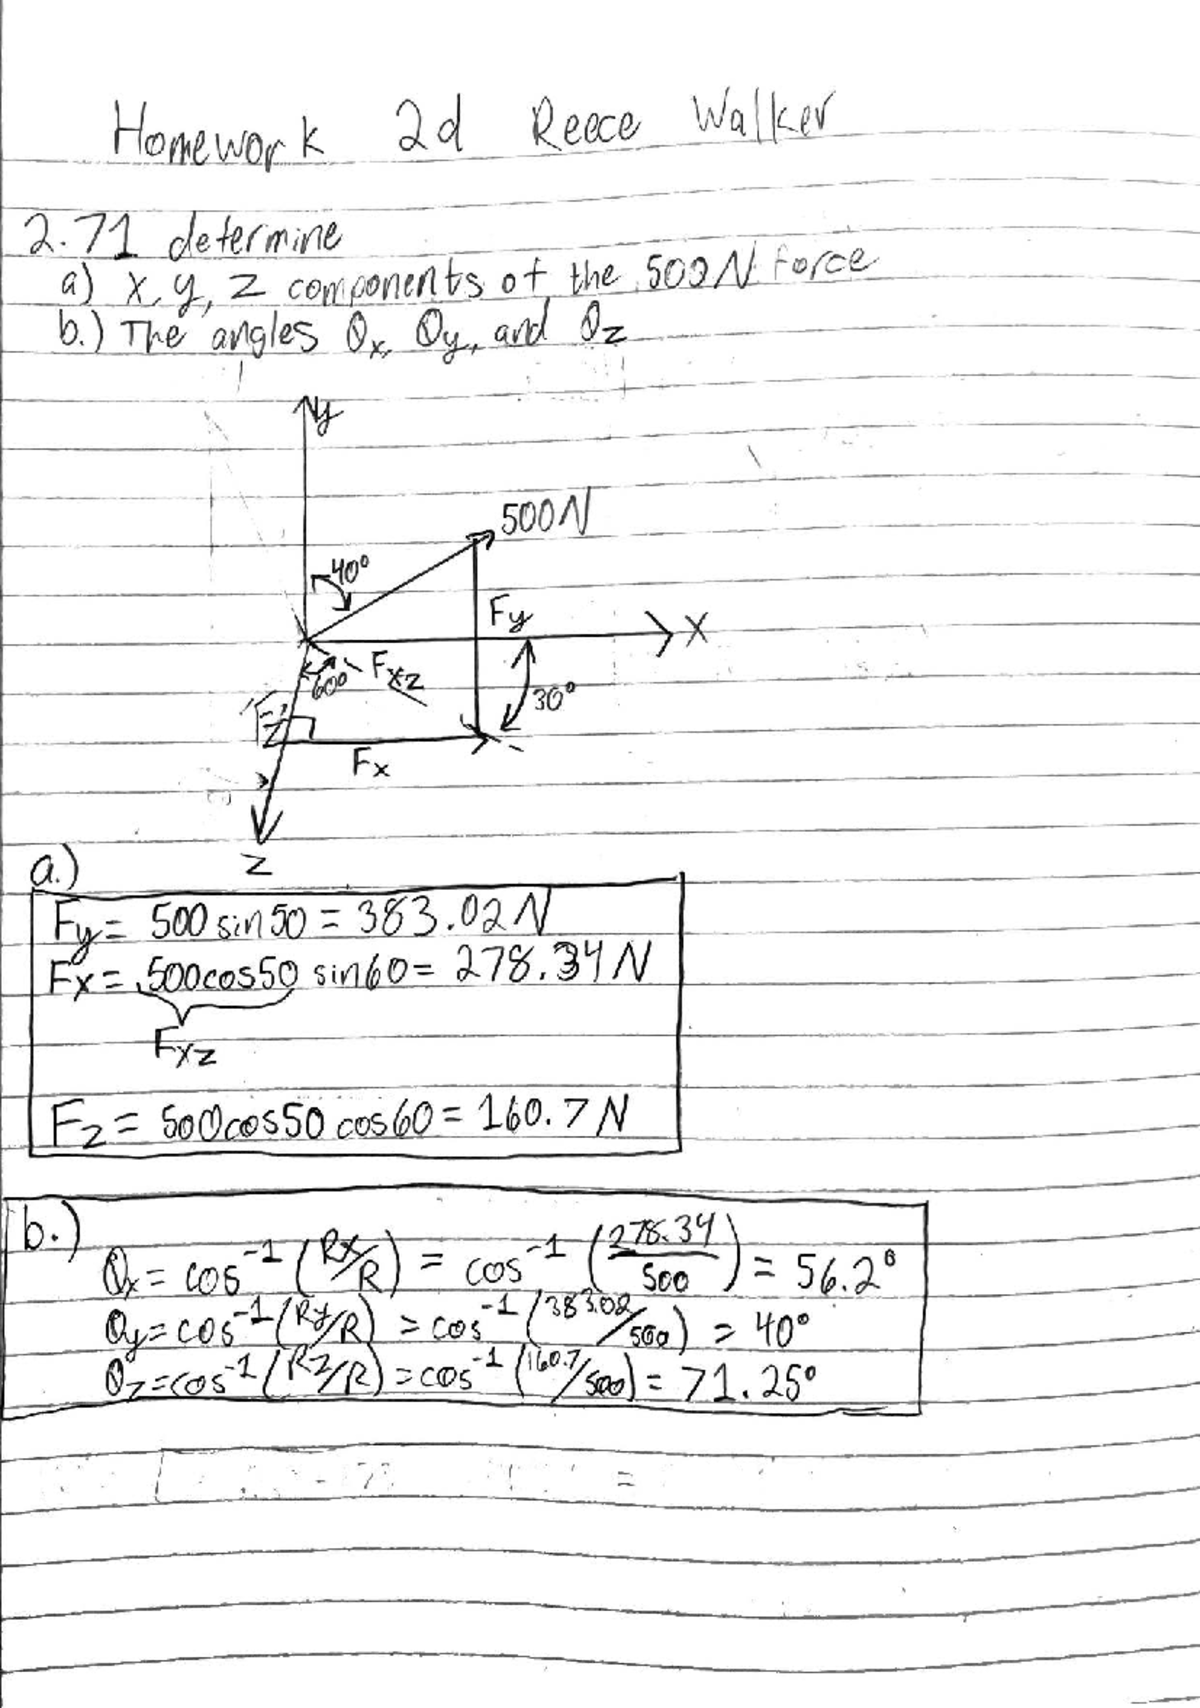 Homework 2d Reece Walker
2.71 determine
a) x, y, z components of the 500N force
b.) The angles θx, θy, and θz
y
500N
40°
Fy
X
60°
Fxz
30°
Fz
Fx
z
a.)
Fy = 500 sin 50 = 383.02 N
Fx = 500cos50 sin60 = 278.34 N
Fxz
Fz = 500cos50 cos60 = 160.7 N
b.)
θx = cos⁻¹ (Rx/R) = cos⁻¹ (278.34/500) = 56.2°
θy = cos⁻¹ (Ry/R) = cos⁻¹ (383.02/500) = 40°
θz = cos⁻¹ (Rz/R) = cos⁻¹ (160.7/500) = 71.25°